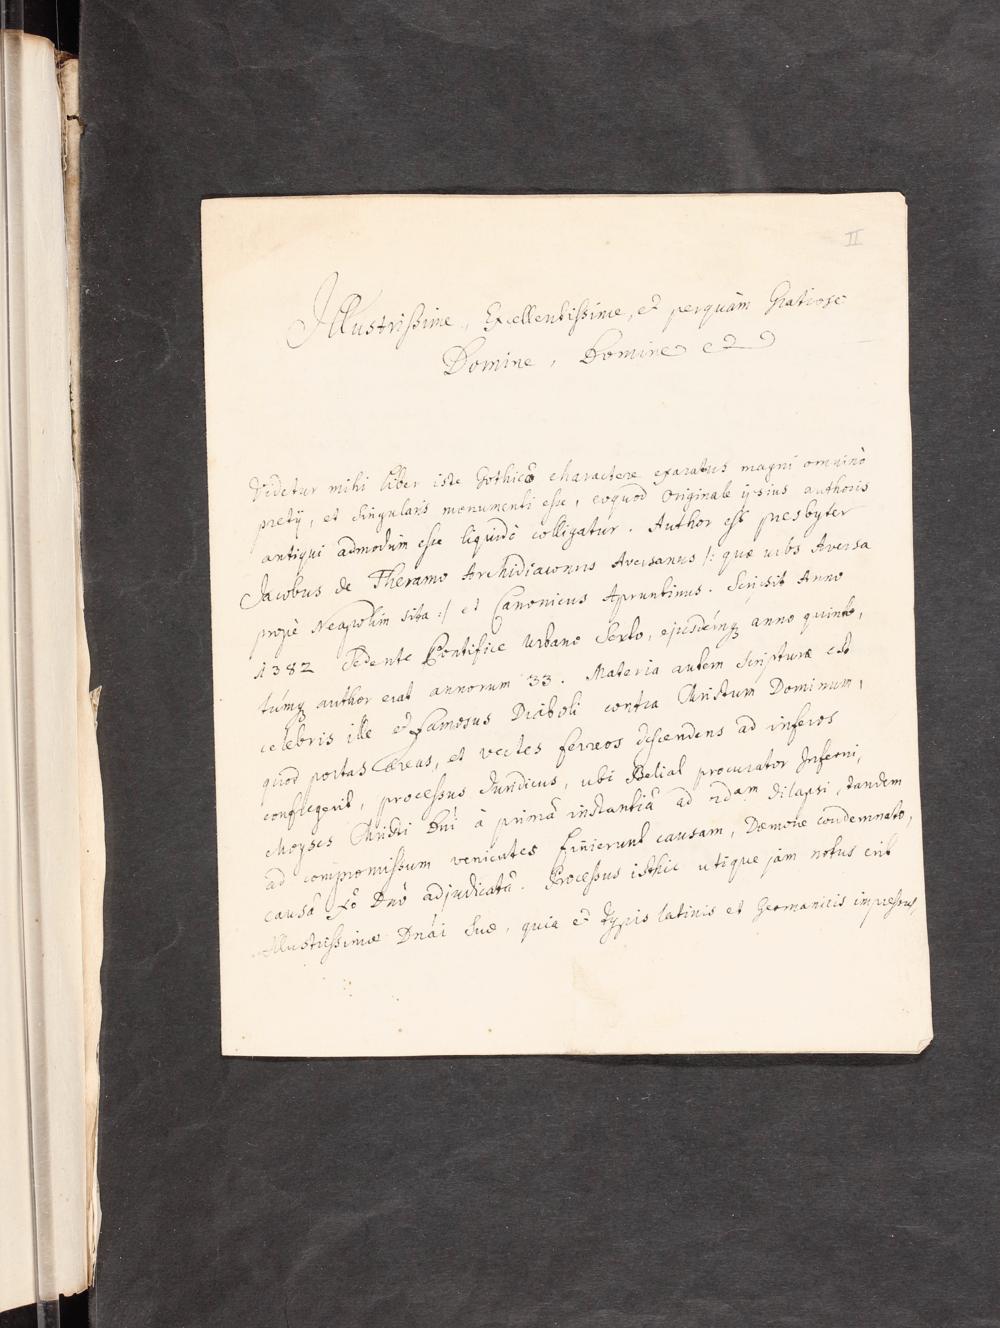 II
Illustrissime, Excellentissime, et perquàm Gratiose
Domine, Domine etc
Videtur mihi liber iste Gothicô charactere exaratus magni omninò
pretij, et singularis monumenti esse, eoquòd Originale ipsius authoris
antiqui admodùm esse liquidò colligatur. Author est presbyter
Jacobus de Theramo Archidiaconus Aversanus /: quæ urbs Aversa
propè Neapolim sita :/ et Canonicus Apruntinus. Scripsit Anno
1382 sedente Pontifice Urbano Sexto, ejusdémq3 anno quinto,
túmq3 author erat annorum 33. Materia autem scripturæ est
celebris ille et famosus Diaboli contra Christum Dominum,
quòd portas æreas, et vectes ferreos descendens ad inferos
confregerit, processus Juridicus, ubi Belial procurator Inferni,
Moyses Christi Dni à primâ instantiâ ad 2dam dilapsi, tandem
ad compromissum venientes finierunt causam, Dæmone condemnato,
causâ Xo Dnô adjudicatâ. Processus isthic utique jam notus erit
Illustrissimæ Dnâi suæ, quia et typis latinis et Germanicis impressus,